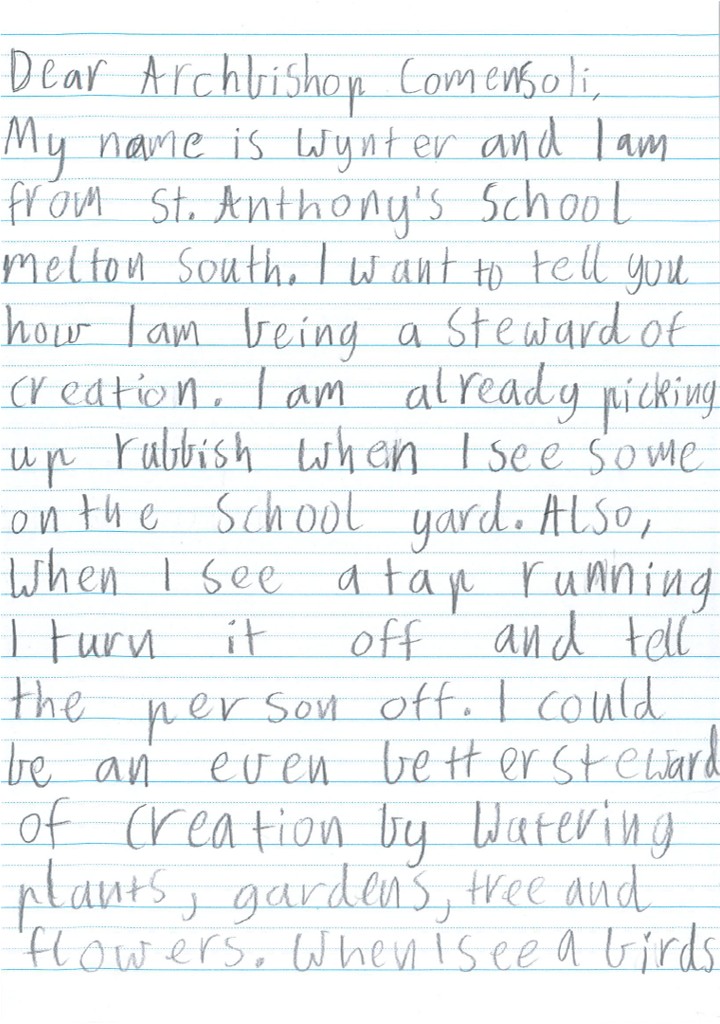 Dear Archbishop Comensoli,
My name is Wynter and I am
from St. Anthony's School
melton South. I want to tell you
how I am being a Steward of
creation. I am already picking
up rubbish when I see some
on the School yard. Also,
When I see a tap running
I turn it off and tell
the person off. I could
be an even better steward
of Creation by Watering
plants, gardens, tree and
flowers. When I see a birds